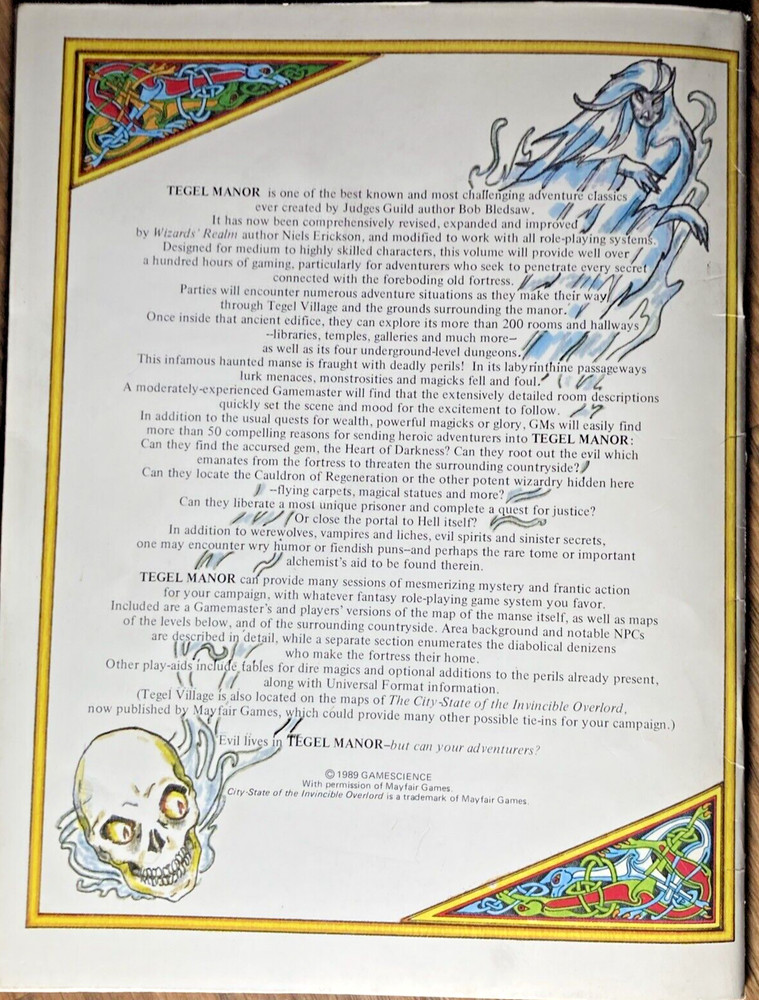 TEGEL MANOR is one of the best known and most challenging adventure classics
ever created by Judges Guild author Bob Bledsaw.
It has now been comprehensively revised, expanded and improved
by Wizards' Realm author Niels Erickson, and modified to work with all role-playing systems.
Designed for medium to highly skilled characters, this volume will provide well over
a hundred hours of gaming, particularly for adventurers who seek to penetrate every secret
connected with the foreboding old fortress.
Parties will encounter numerous adventure situations as they make their way
through Tegel Village and the grounds surrounding the manor.
Once inside that ancient edifice, they can explore its more than 200 rooms and hallways
--libraries, temples, galleries and much more--
as well as its four underground-level dungeons.
This infamous haunted manse is fraught with deadly perils! In its labyrinthine passageways
lurk menaces, monstrosities and magicks fell and foul.
A moderately-experienced Gamemaster will find that the extensively detailed room descriptions
quickly set the scene and mood for the excitement to follow.
In addition to the usual quests for wealth, powerful magicks or glory, GMs will easily find
more than 50 compelling reasons for sending heroic adventurers into TEGEL MANOR:
Can they find the accursed gem, the Heart of Darkness? Can they root out the evil which
emanates from the fortress to threaten the surrounding countryside?
Can they locate the Cauldron of Regeneration or the other potent wizardry hidden here
--flying carpets, magical statues and more?
Can they liberate a most unique prisoner and complete a quest for justice?
Or close the portal to Hell itself?
In addition to werewolves, vampires and liches, evil spirits and sinister secrets,
one may encounter wry humor or fiendish puns--and perhaps the rare tome or important
alchemist's aid to be found therein.
TEGEL MANOR can provide many sessions of mesmerizing mystery and frantic action
for your campaign, with whatever fantasy role-playing game system you favor.
Included are a Gamemaster's and players' versions of the map of the manse itself, as well as maps
of the levels below, and of the surrounding countryside. Area background and notable NPCs
are described in detail, while a separate section enumerates the diabolical denizens
who make the fortress their home.
Other play-aids include tables for dire magics and optional additions to the perils already present,
along with Universal Format information.
(Tegel Village is also located on the maps of The City-State of the Invincible Overlord,
now published by Mayfair Games, which could provide many other possible tie-ins for your campaign.)
Evil lives in TEGEL MANOR--but can your adventurers?
© 1989 GAMESCIENCE
With permission of Mayfair Games.
City-State of the Invincible Overlord is a trademark of Mayfair Games.